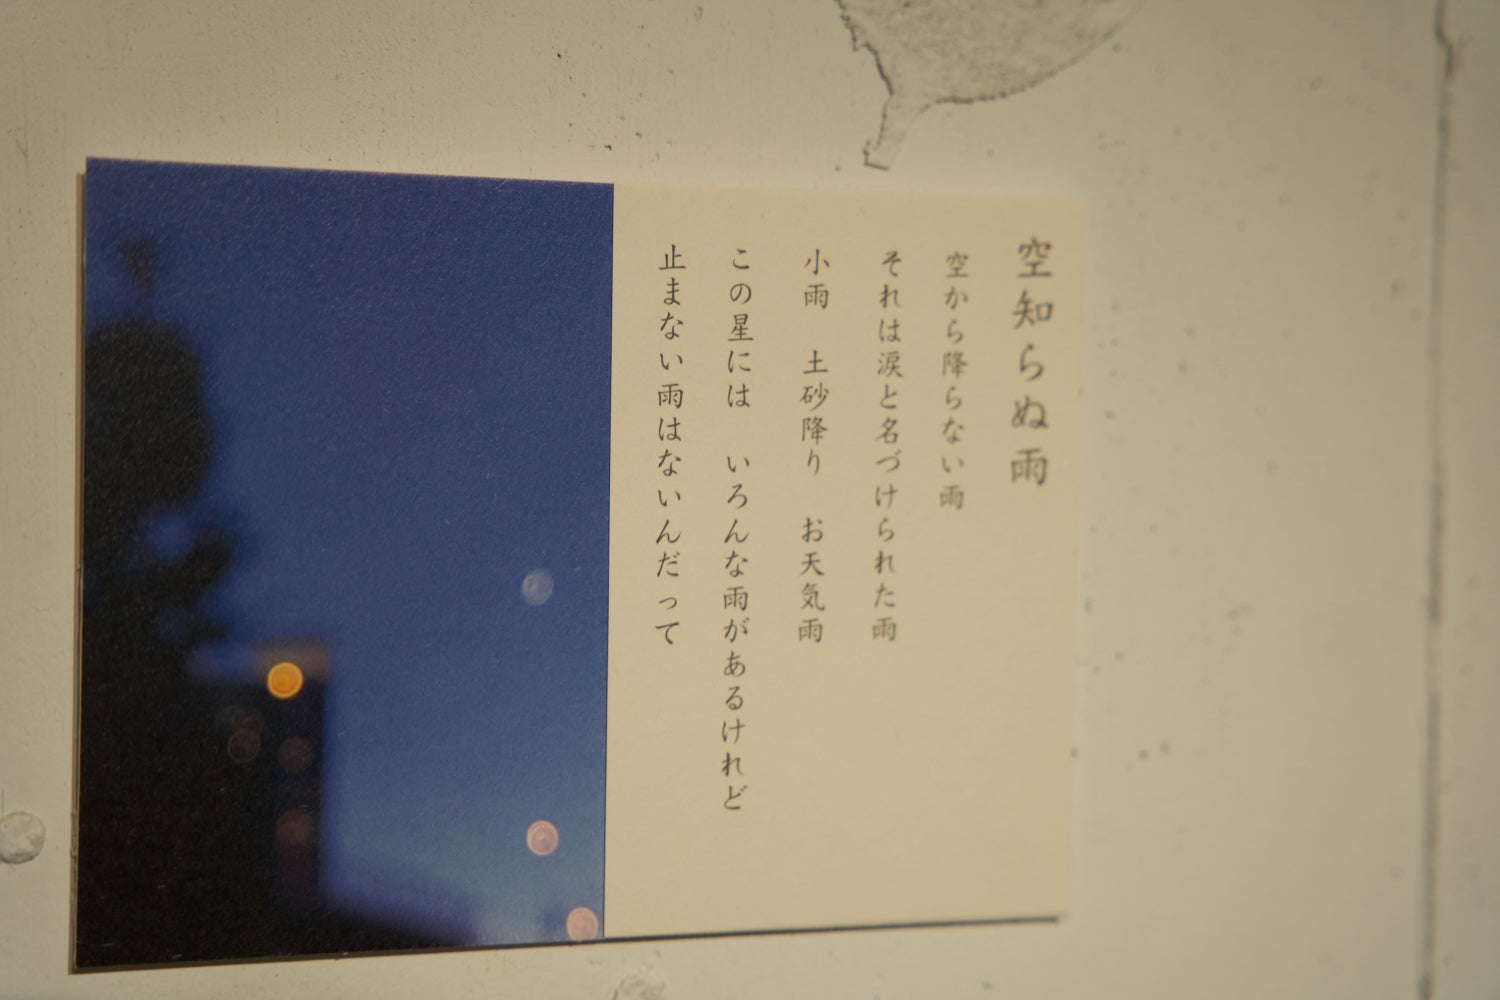 空知らぬ雨
空から降らない雨
それは涙と名づけられた雨
小雨　土砂降り　お天気雨
この星には　いろんな雨があるけれど
止まない雨はないんだって